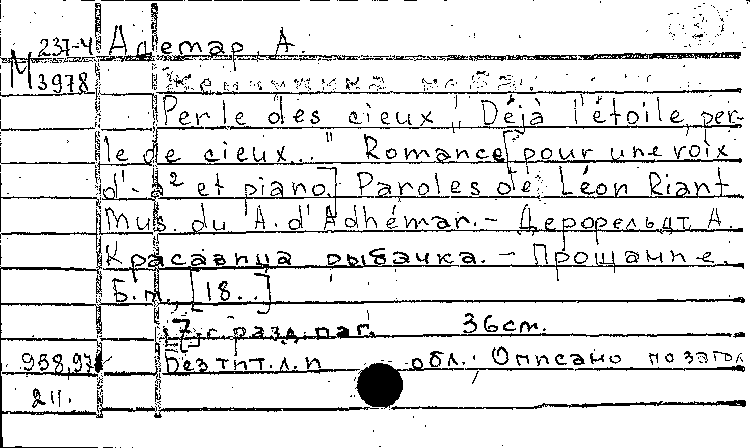 237-4 Адемар, А.
М 3978 Жемчужина неба.
Perle des cieux „Déjà l'étoile, per-
le de cieux..." Romance [pour une voix
d'-a² et piano.] Paroles de Léon Riant
Mus. du A. d'Adhémar. – Дерфельдт А.
Красавица рыбачка. – Прощание.
Б.м., [18..]
[7] с. разд. паг. 36 см.
Без тит. л. и обл. Описано по загол.
211.